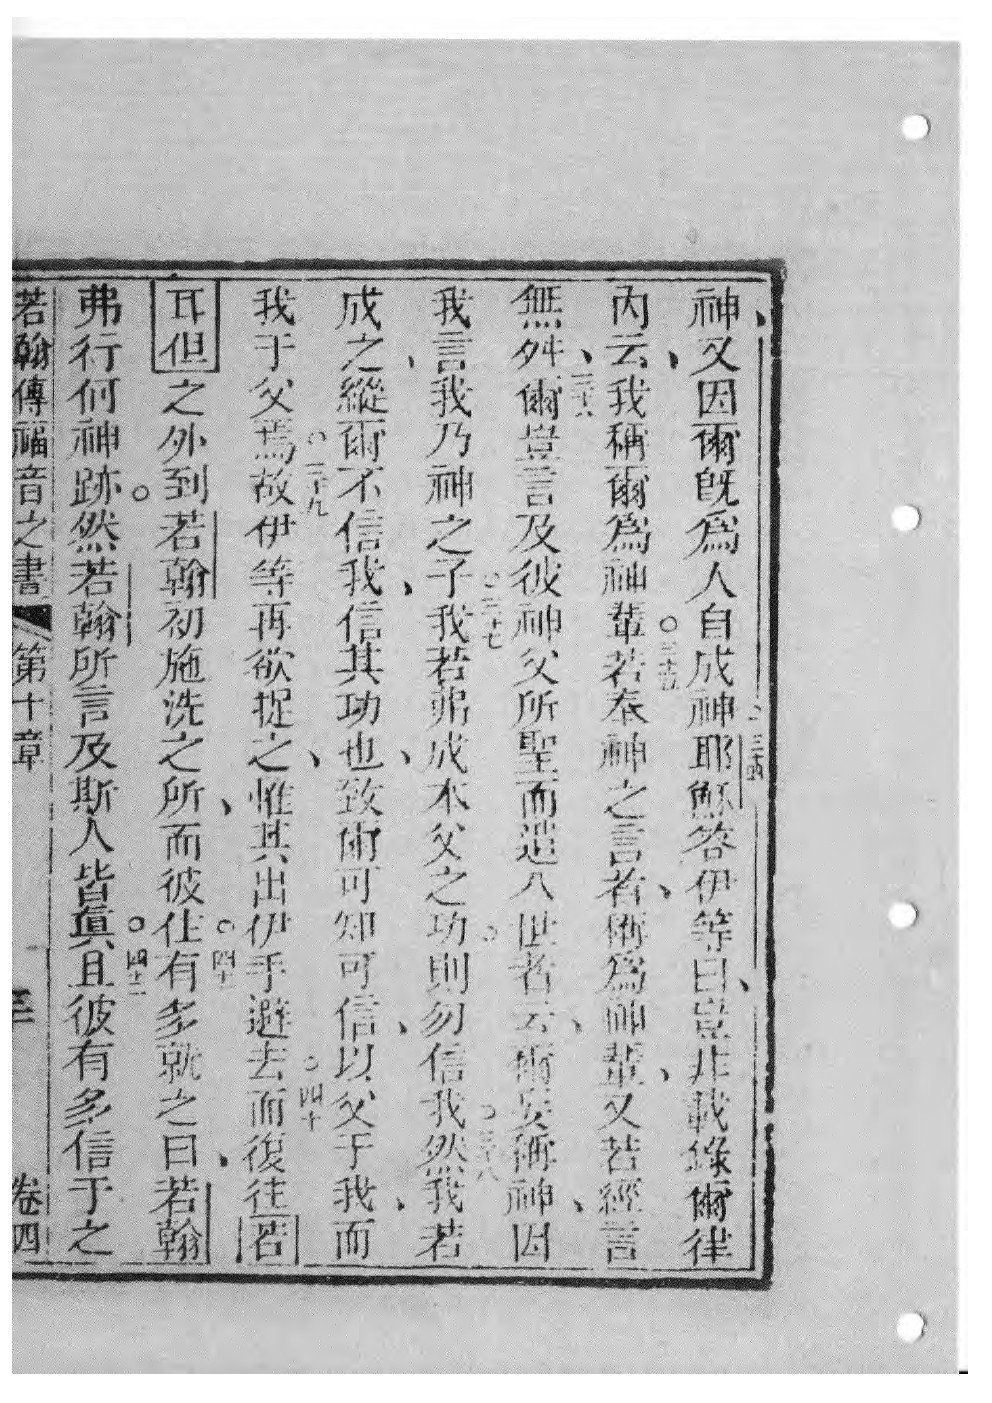 神又因爾既爲人自成神三十四耶穌答伊等曰豈非載錄爾律
內云我稱爾爲神輩三十五若奉神之言者稱爲神輩又若經言
無舛三十六爾豈言及彼神父所聖而遣入世者云爾妄稱神因
我言我乃神之子三十七我若弗成本父之功則勿信我三十八然我若
成之縱爾不信我信其功也致爾可知可信以父于我而
我于父焉三十九故伊等再欲捉之惟其出伊手避去四十而復往若
耳但之外到若翰初施洗之所而彼住四十一有多就之曰若翰
弗行何神跡然若翰所言及斯人皆真四十二且彼有多信于之
若翰傳福音之書 第十章 三 卷四